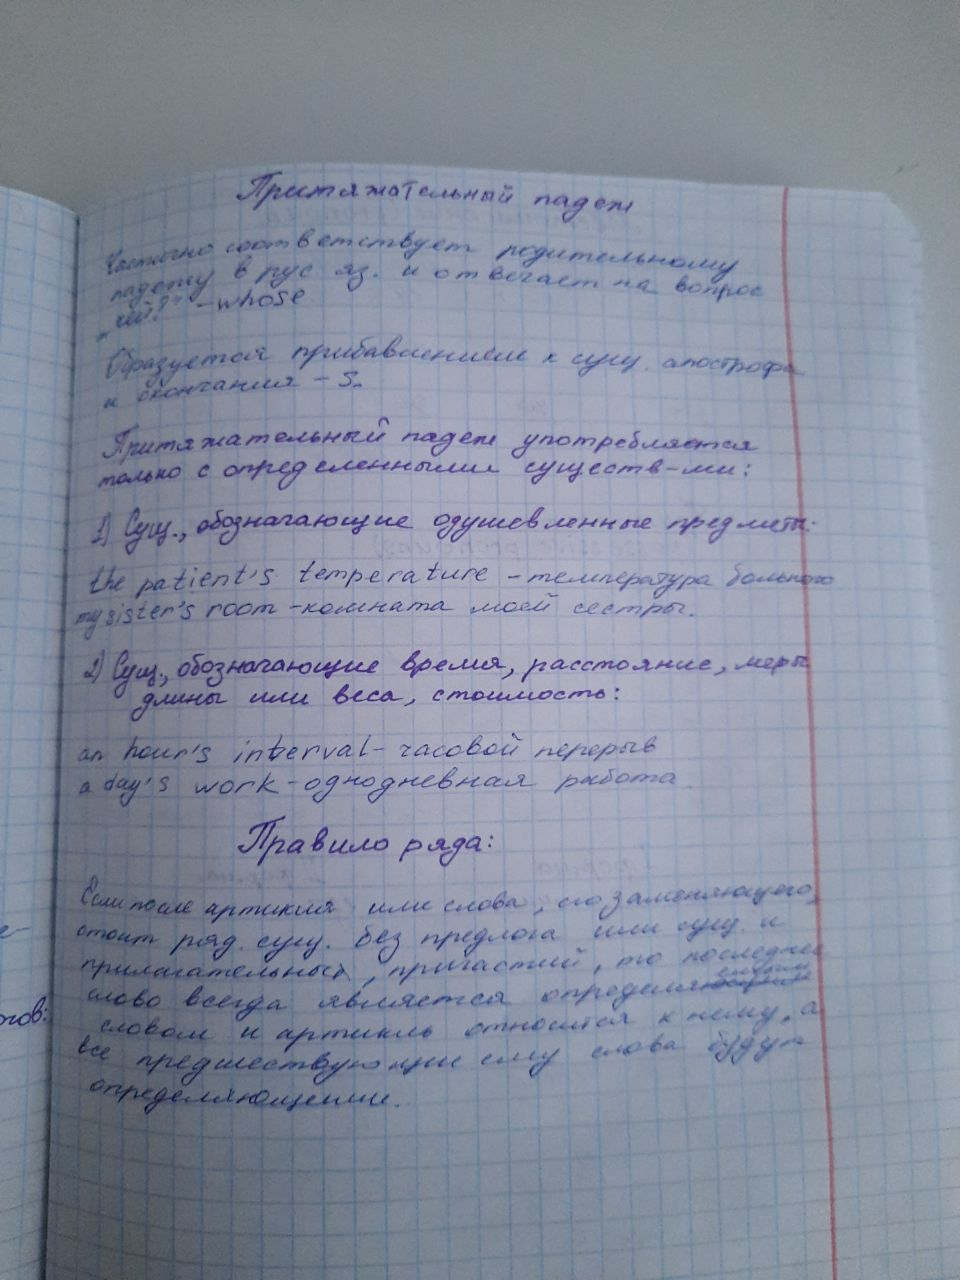 Притяжательный падеж
Частично соответствует родительному
падежу в рус яз. и отвечает на вопрос
„чей?" - whose
Образуется прибавлением к сущ. апострофа
и окончания - s.
Притяжательный падеж употребляется
только с определенными существ-ми:
1) Сущ., обозначающие одушевленные предметы:
the patient's temperature - температура больного
my sister's room - комната моей сестры.
2) Сущ., обозначающие время, расстояние, меры
длины или веса, стоимость:
an hour's interval - часовой перерыв
a day's work - однодневная работа
Правило ряда:
Если после артикля или слова, его заменяющего,
стоит ряд сущ. без предлога или сущ. и
прилагательных, причастий, то последнее
слово всегда является определяемым
словом и артикль относится к нему, а
все предшествующие ему слова будут
определяющими.
ов: